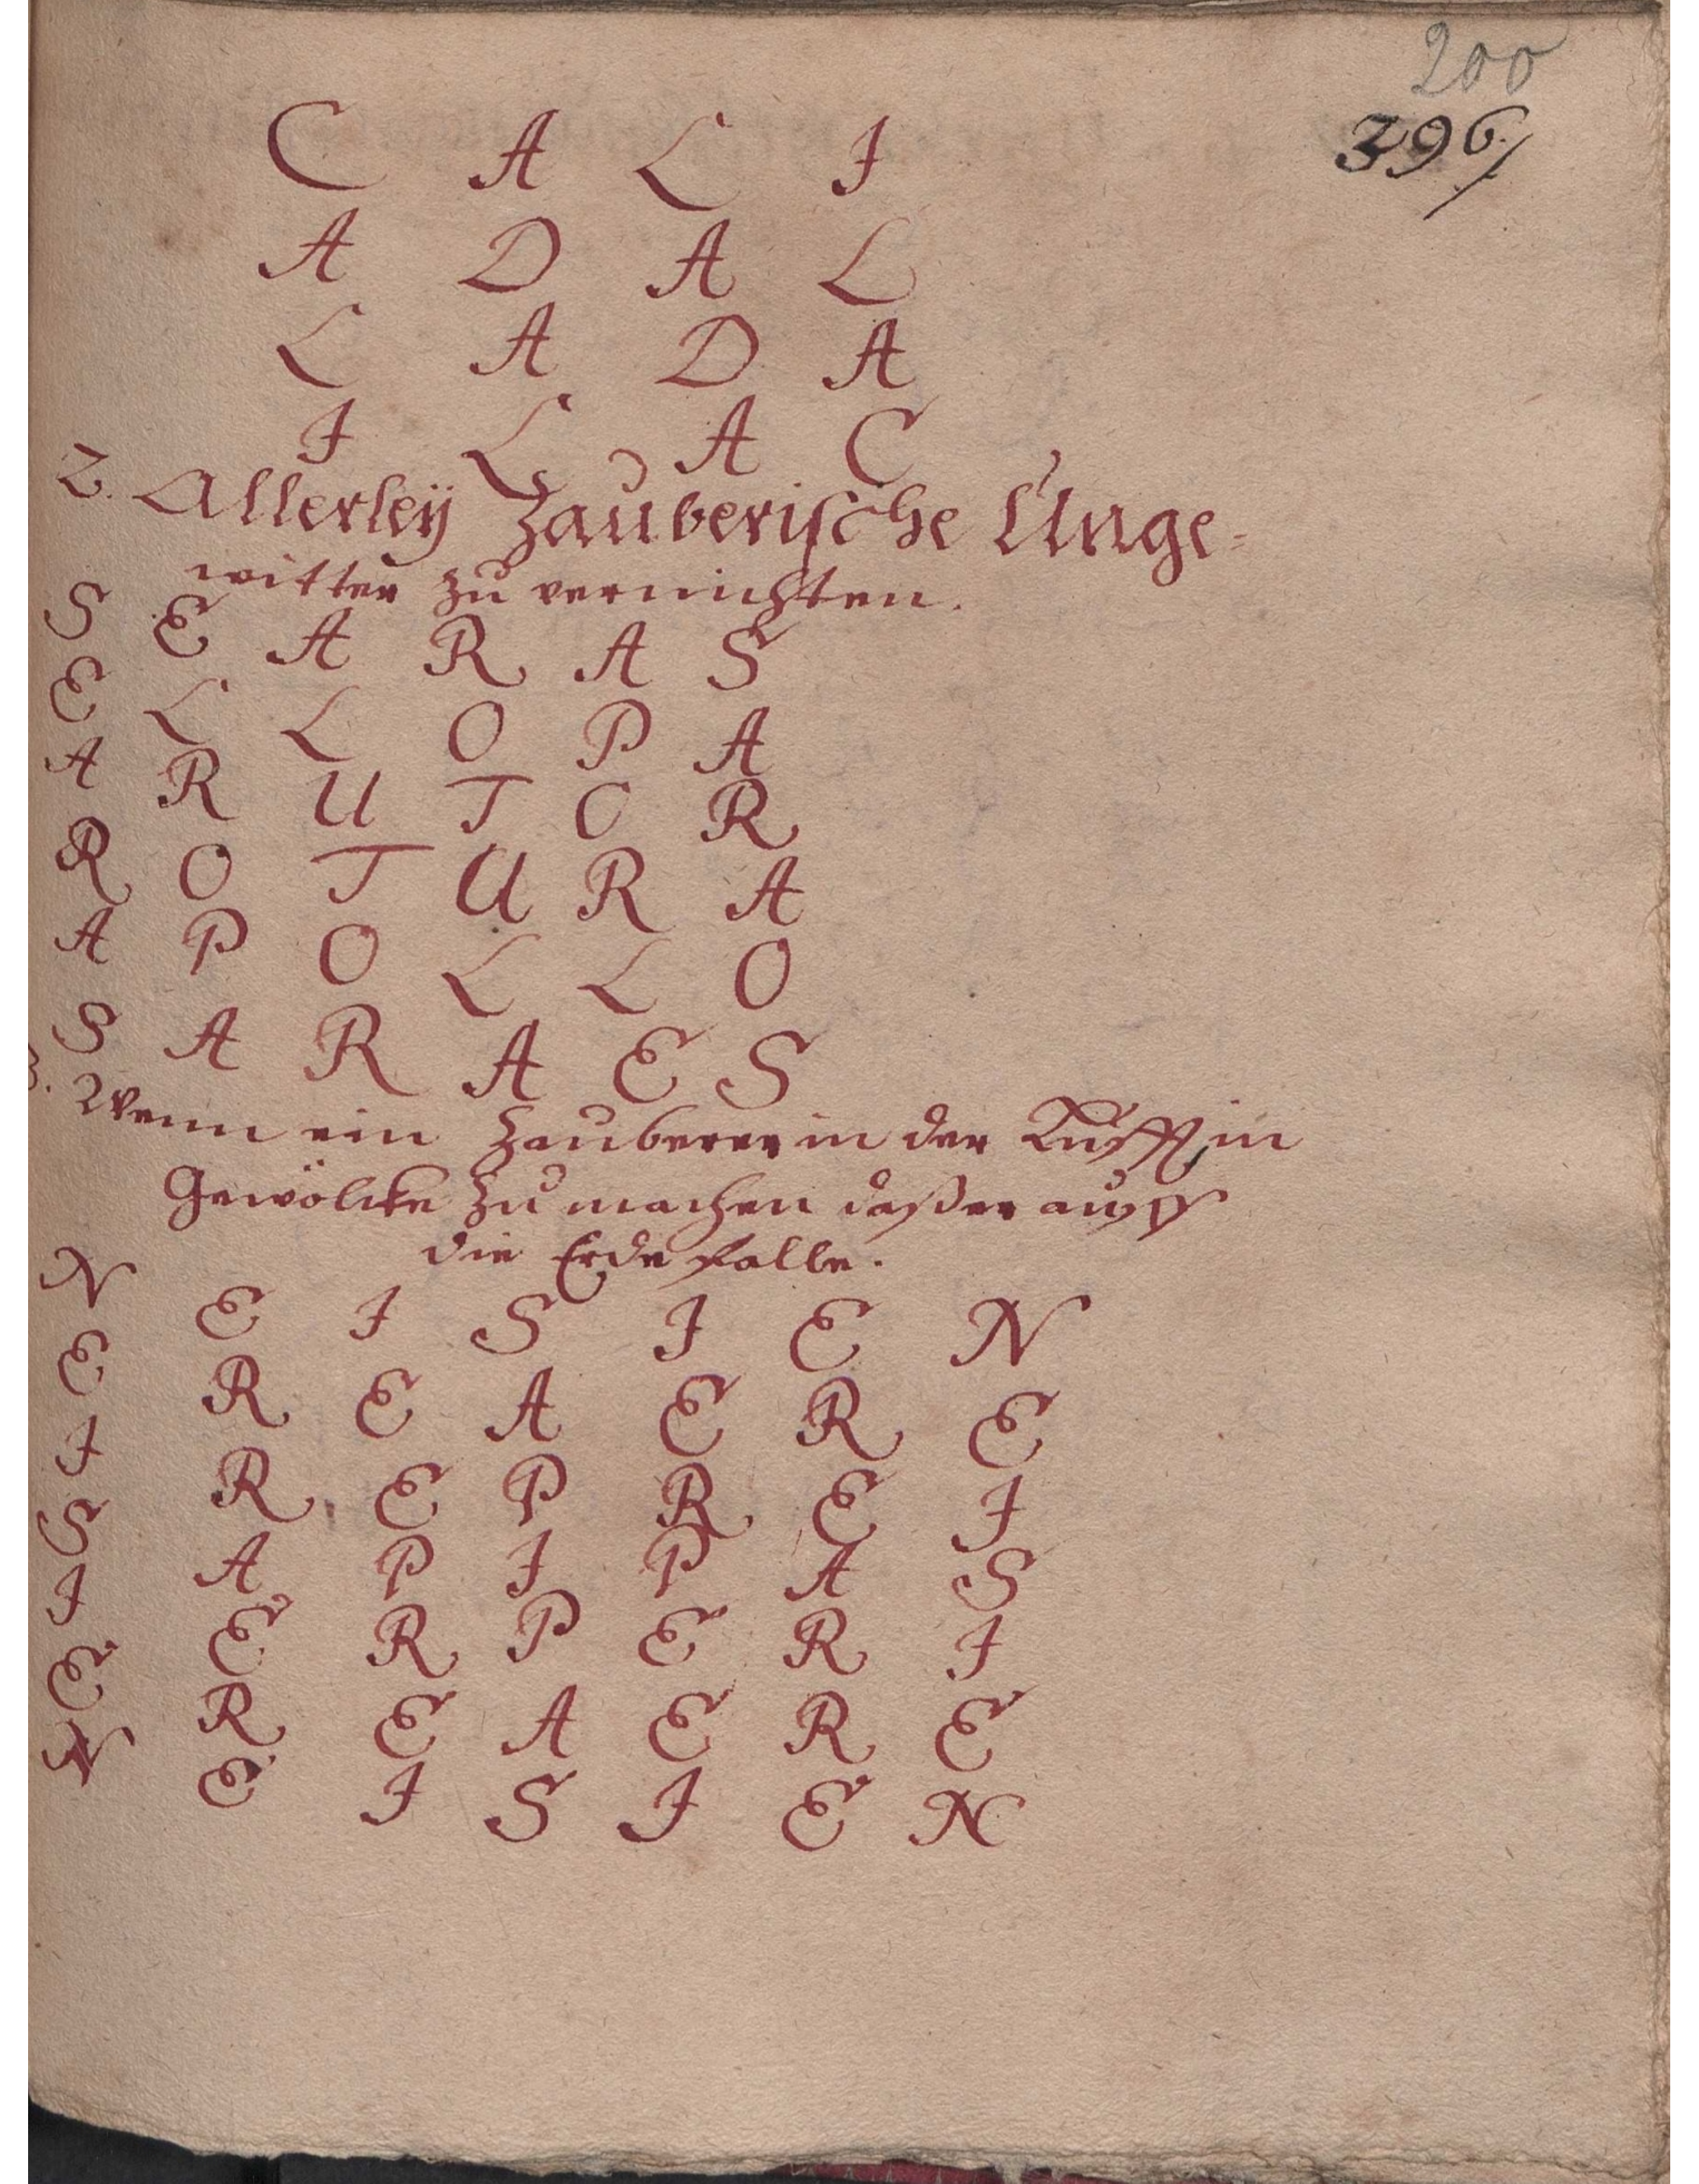 200
396/
C A L I
A D A L
L A D A
I L A C
2. Allerleÿ Zauberische Unge-
witter zu vernichten.
S E A R A S
E L L O P A
A R U T O R
R O T U R A
A P O L L O
S A R A E S
3. Wenn ein Zauberer in der Lufft in
Gewölcke zu machen daß er auff
die Erde falle.
N E I S I E N
E R E A E R E
I R E P R E I
S A P I P A S
I E R P E R I
E R E A E R E
N E I S I E N